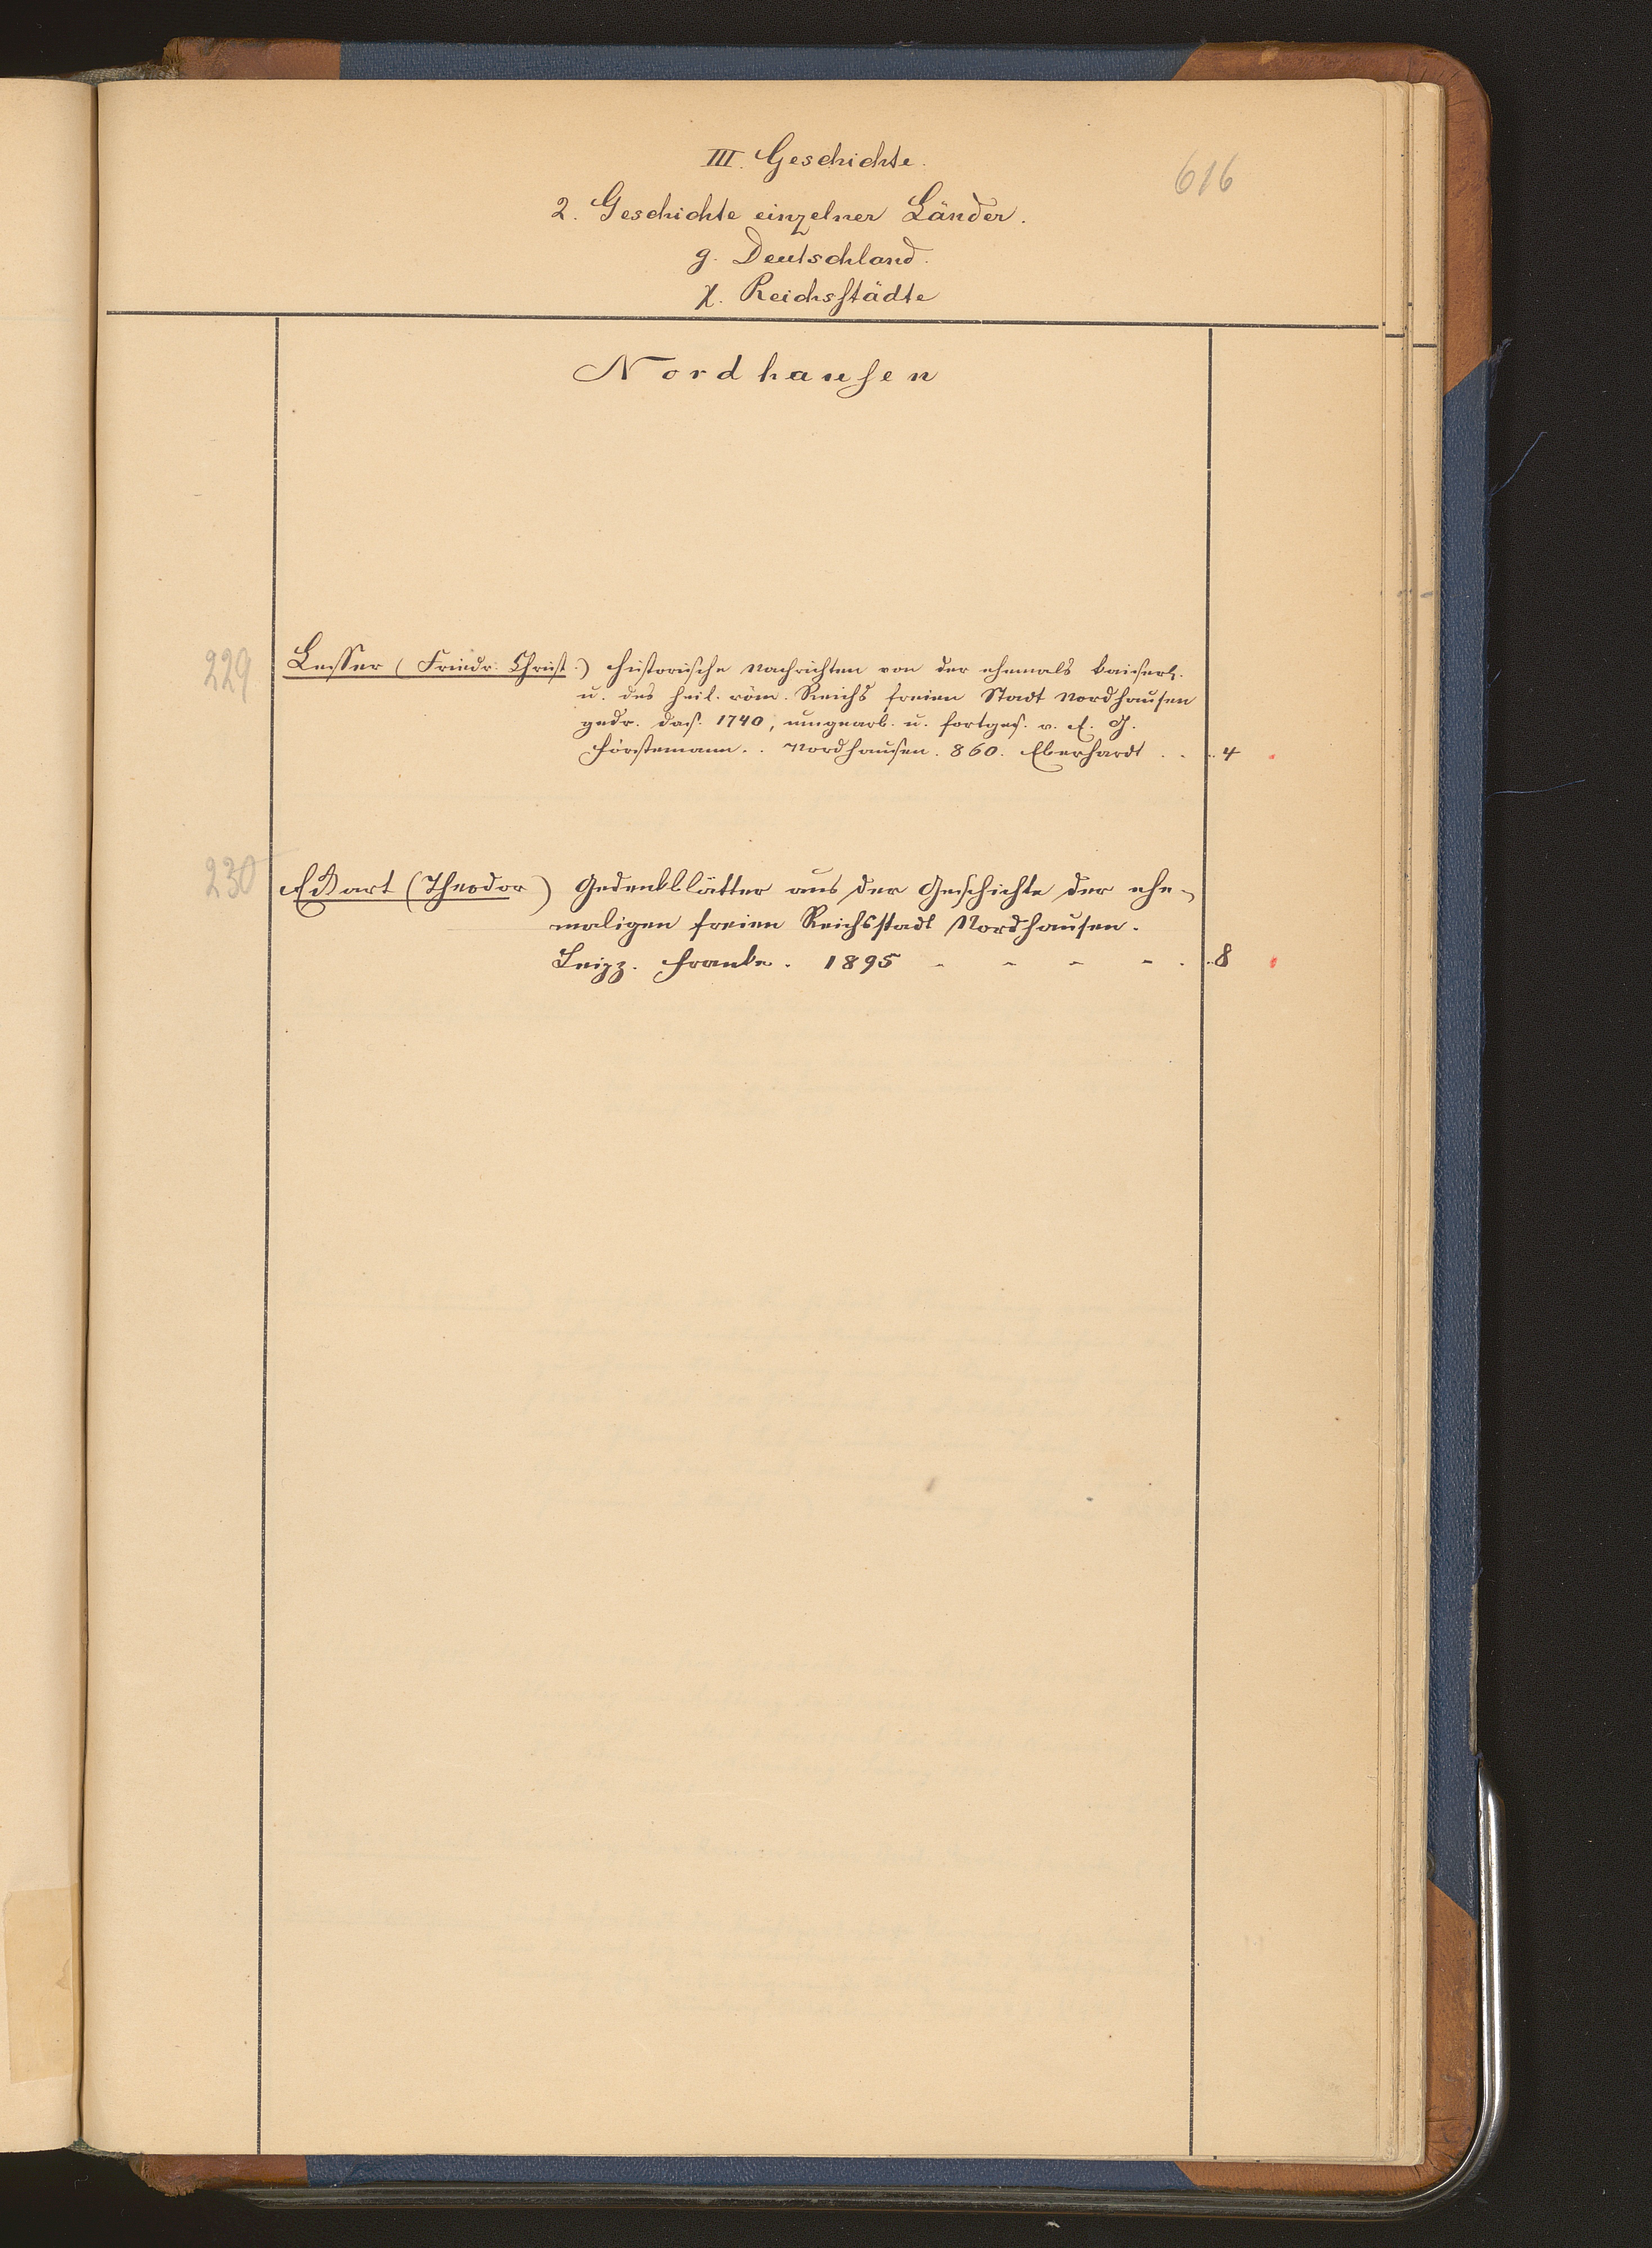 III. Geschichte.
616
2. Geschichte einzelner Länder.
g. Deutschland.
χ. Reichsstädte
Nordhausen
229
Lesser (Friedr. Christ.) historische Nachrichten von der ehemals kaiserl.
u. des heil. röm. Reichs freien Stadt Nordhausen
gedr. das. 1740, umgearb. u. fortges. v. E. G.
Förstemann. . Nordhausen. 860. Eberhardt . . . 4
230
Eckart (Theodor) Gedenkblätter aus der Geschichte der ehe-
maligen freien Reichsstadt Nordhausen.
Leipz. Franke. 1895 - - - - . . 8